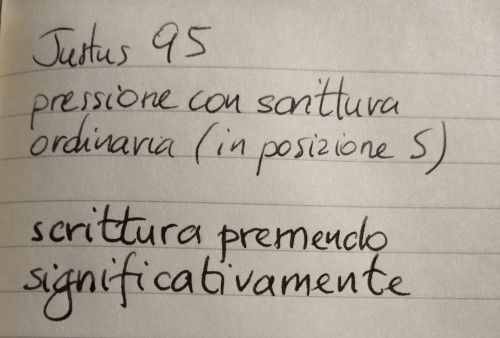 Justus 95
pressione con scrittura
ordinaria (in posizione S)
scrittura premendo
significativamente